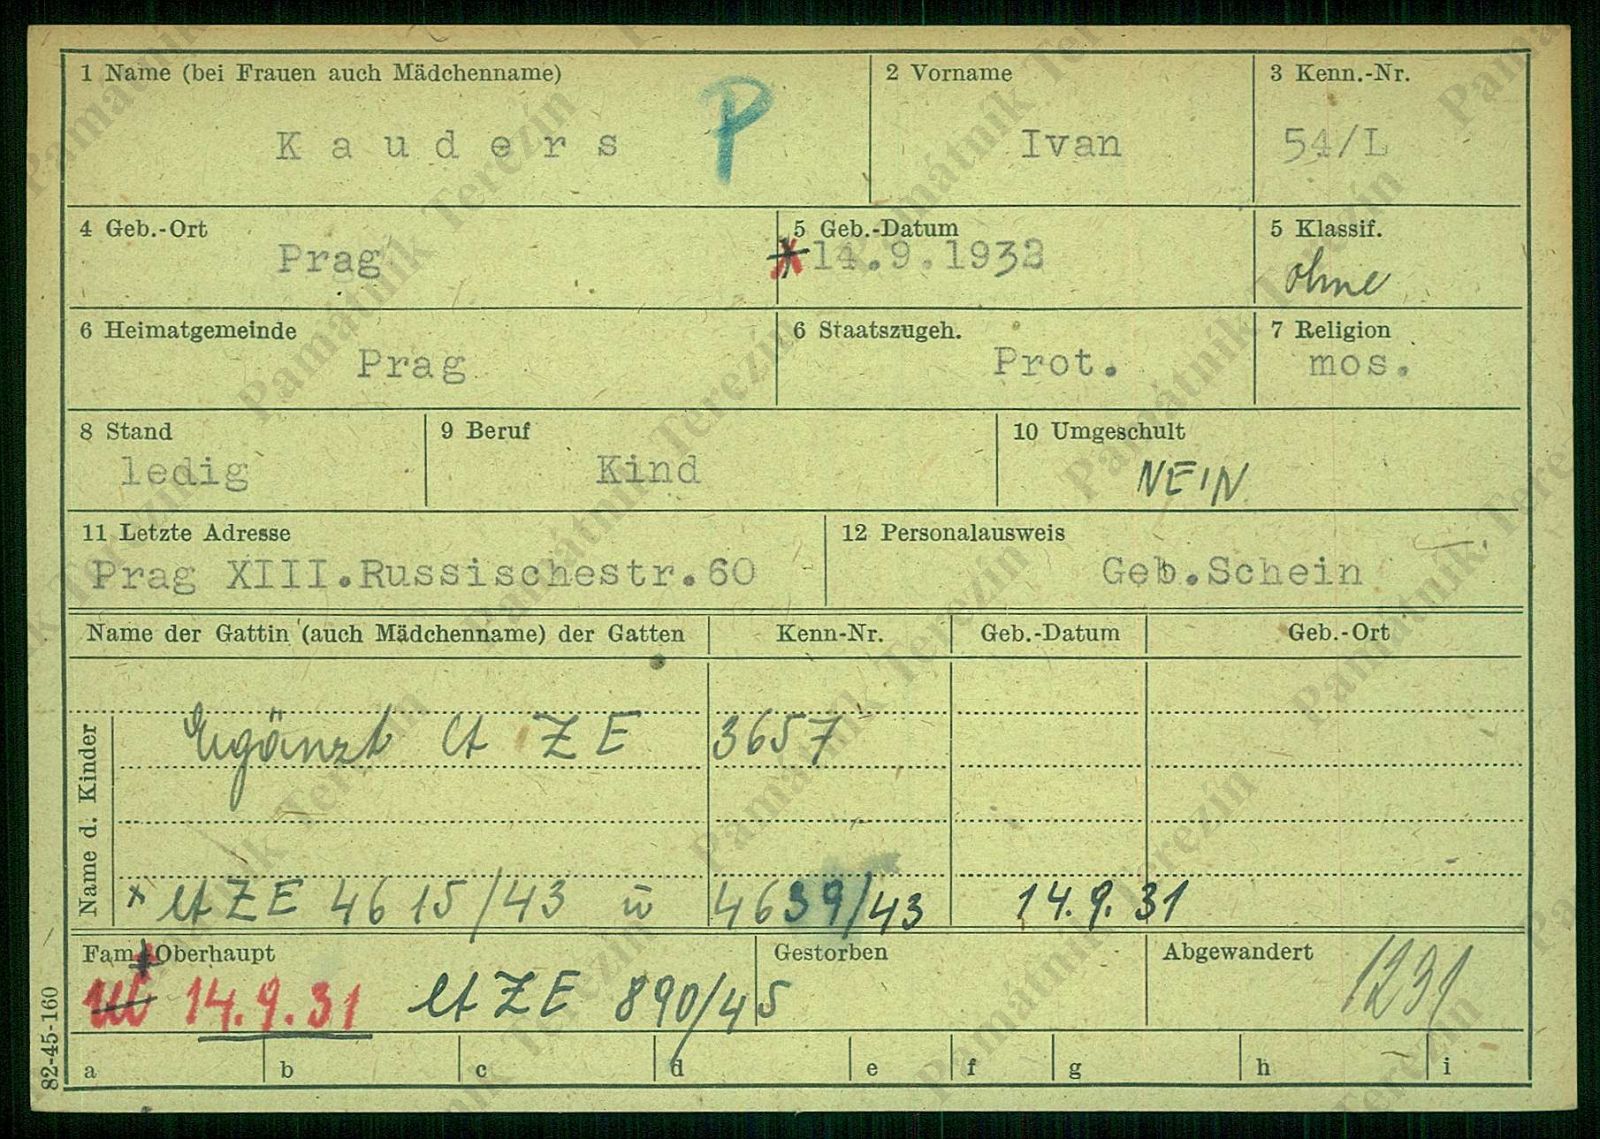 1 Name (bei Frauen auch Mädchenname)
Kauders
P
2 Vorname
Ivan
3 Kenn.-Nr.
54/L
4 Geb.-Ort
Prag
5 Geb.-Datum
*14.9.1932
5 Klassif.
ohne
6 Heimatgemeinde
Prag
6 Staatszugeh.
Prot.
7 Religion
mos.
8 Stand
ledig
9 Beruf
Kind
10 Umgeschult
NEIN
11 Letzte Adresse
Prag XIII.Russischestr.60
12 Personalausweis
Geb.Schein
Name der Gattin (auch Mädchenname) der Gatten
Kenn-Nr.
Geb.-Datum
Geb.-Ort
Name d. Kinder
Ergänzt lt ZE 3657
* lt ZE 4615/43 u 4639/43 14.9.31
Fam. Oberhaupt
14.9.31 lt ZE 890/45
Gestorben
Abgewandert
1231
a b c d e f g h i
82-45-160
Památník Terezín